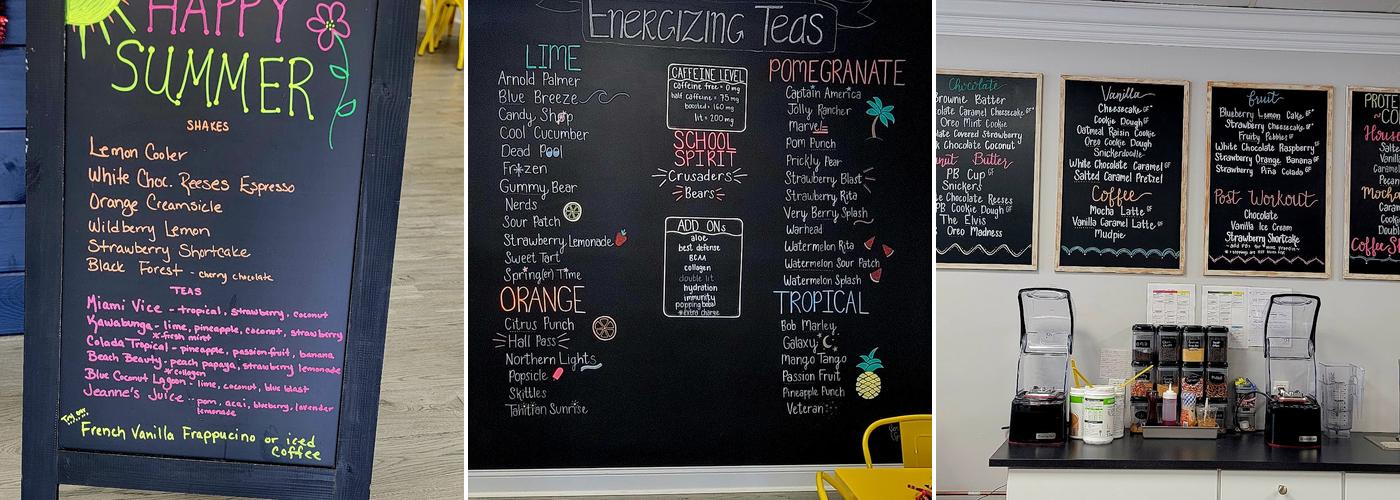 HAPPY
SUMMER
SHAKES
Lemon Cooler
White Choc. Reeses Espresso
Orange Creamsicle
Wildberry Lemon
Strawberry Shortcake
Black Forest - cherry chocolate
TEAS
Miami Vice - tropical, strawberry, coconut
Kawabunga - lime, pineapple, coconut, strawberry
*fresh mint
Colada Tropical - pineapple, passion-fruit, banana
Beach Beauty - peach papaya, strawberry lemonade
*collagen
Blue Coconut Lagoon - lime, coconut, blue blast
Jeanne's Juice - pom, acai, blueberry, lavender
lemonade
Try our
French Vanilla Frappucino or iced
coffee
ENERGIZING TEAS
LIME
Arnold Palmer
Blue Breeze
Candy Shop
Cool Cucumber
Dead Pool
Fr*zen
Gummy Bear
Nerds
Sour Patch
Strawberry Lemonade
Sweet Tart
Spring(en) Time
ORANGE
Citrus Punch
Hall Pass
Northern Lights
Popsicle
Skittles
Tahitian Sunrise
CAFFEINE LEVEL
caffeine free = 0 mg
half caffeine = 75 mg
boosted = 160 mg
lit = 200 mg
SCHOOL
SPIRIT
Crusaders
Bears
ADD ONs
aloe
best defense
BCAA
collagen
double lit
hydration
immunity
popping boba
*extra charge
POMEGRANATE
Captain America
Jolly Rancher
Marvels
Pom Punch
Prickly Pear
Strawberry Blast
Strawberry Rita
Very Berry Splash
Warhead
Watermelon Rita
Watermelon Sour Patch
Watermelon Splash
TROPICAL
Bob Marley
Galaxy
Mango Tango
Passion Fruit
Pineapple Punch
Veteran
Chocolate
Brownie Batter
Chocolate Caramel Cheesecake GF
Oreo Mint Cookie
late Covered Strawberry
k Chocolate Coconut
nut Butter
PB Cup GF
Snickers
te Chocolate Reeses
PB Cookie Dough GF
The Elvis
Oreo Madness
Vanilla
Cheesecake GF
Cookie Dough GF
Oatmeal Raisin Cookie
Oreo Cookie Dough
Snickerdoodle
White Chocolate Caramel GF
Salted Caramel Pretzel
Coffee
Mocha Latte GF
Vanilla Caramel Latte GF
Mudpie
Fruit
Blueberry Lemon Cake GF
Strawberry Cheesecake GF
Fruity Pebbles GF
White Chocolate Raspberry GF
Strawberry Orange Banana GF
Strawberry Piña Colada GF
Post Workout
Chocolate
Vanilla Ice Cream
Strawberry Shortcake
PROTE
CO
House
Salte
Vanill
Caram
Pecan
Mocha
Caram
Cook
Doubl
Coffee S